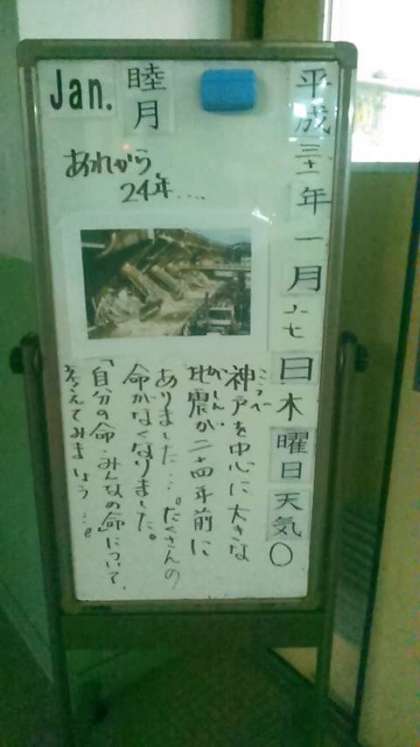 平成三十一年一月十七日木曜日天気〇
睦月
Jan.
あれから
24年....
神戸を中心に大きな
こうべ
地震が二十四年前に
じしん
ありました…。たくさんの
命がなくなりました。
「自分の命・みんなの命」について、
考えてみましょう…。